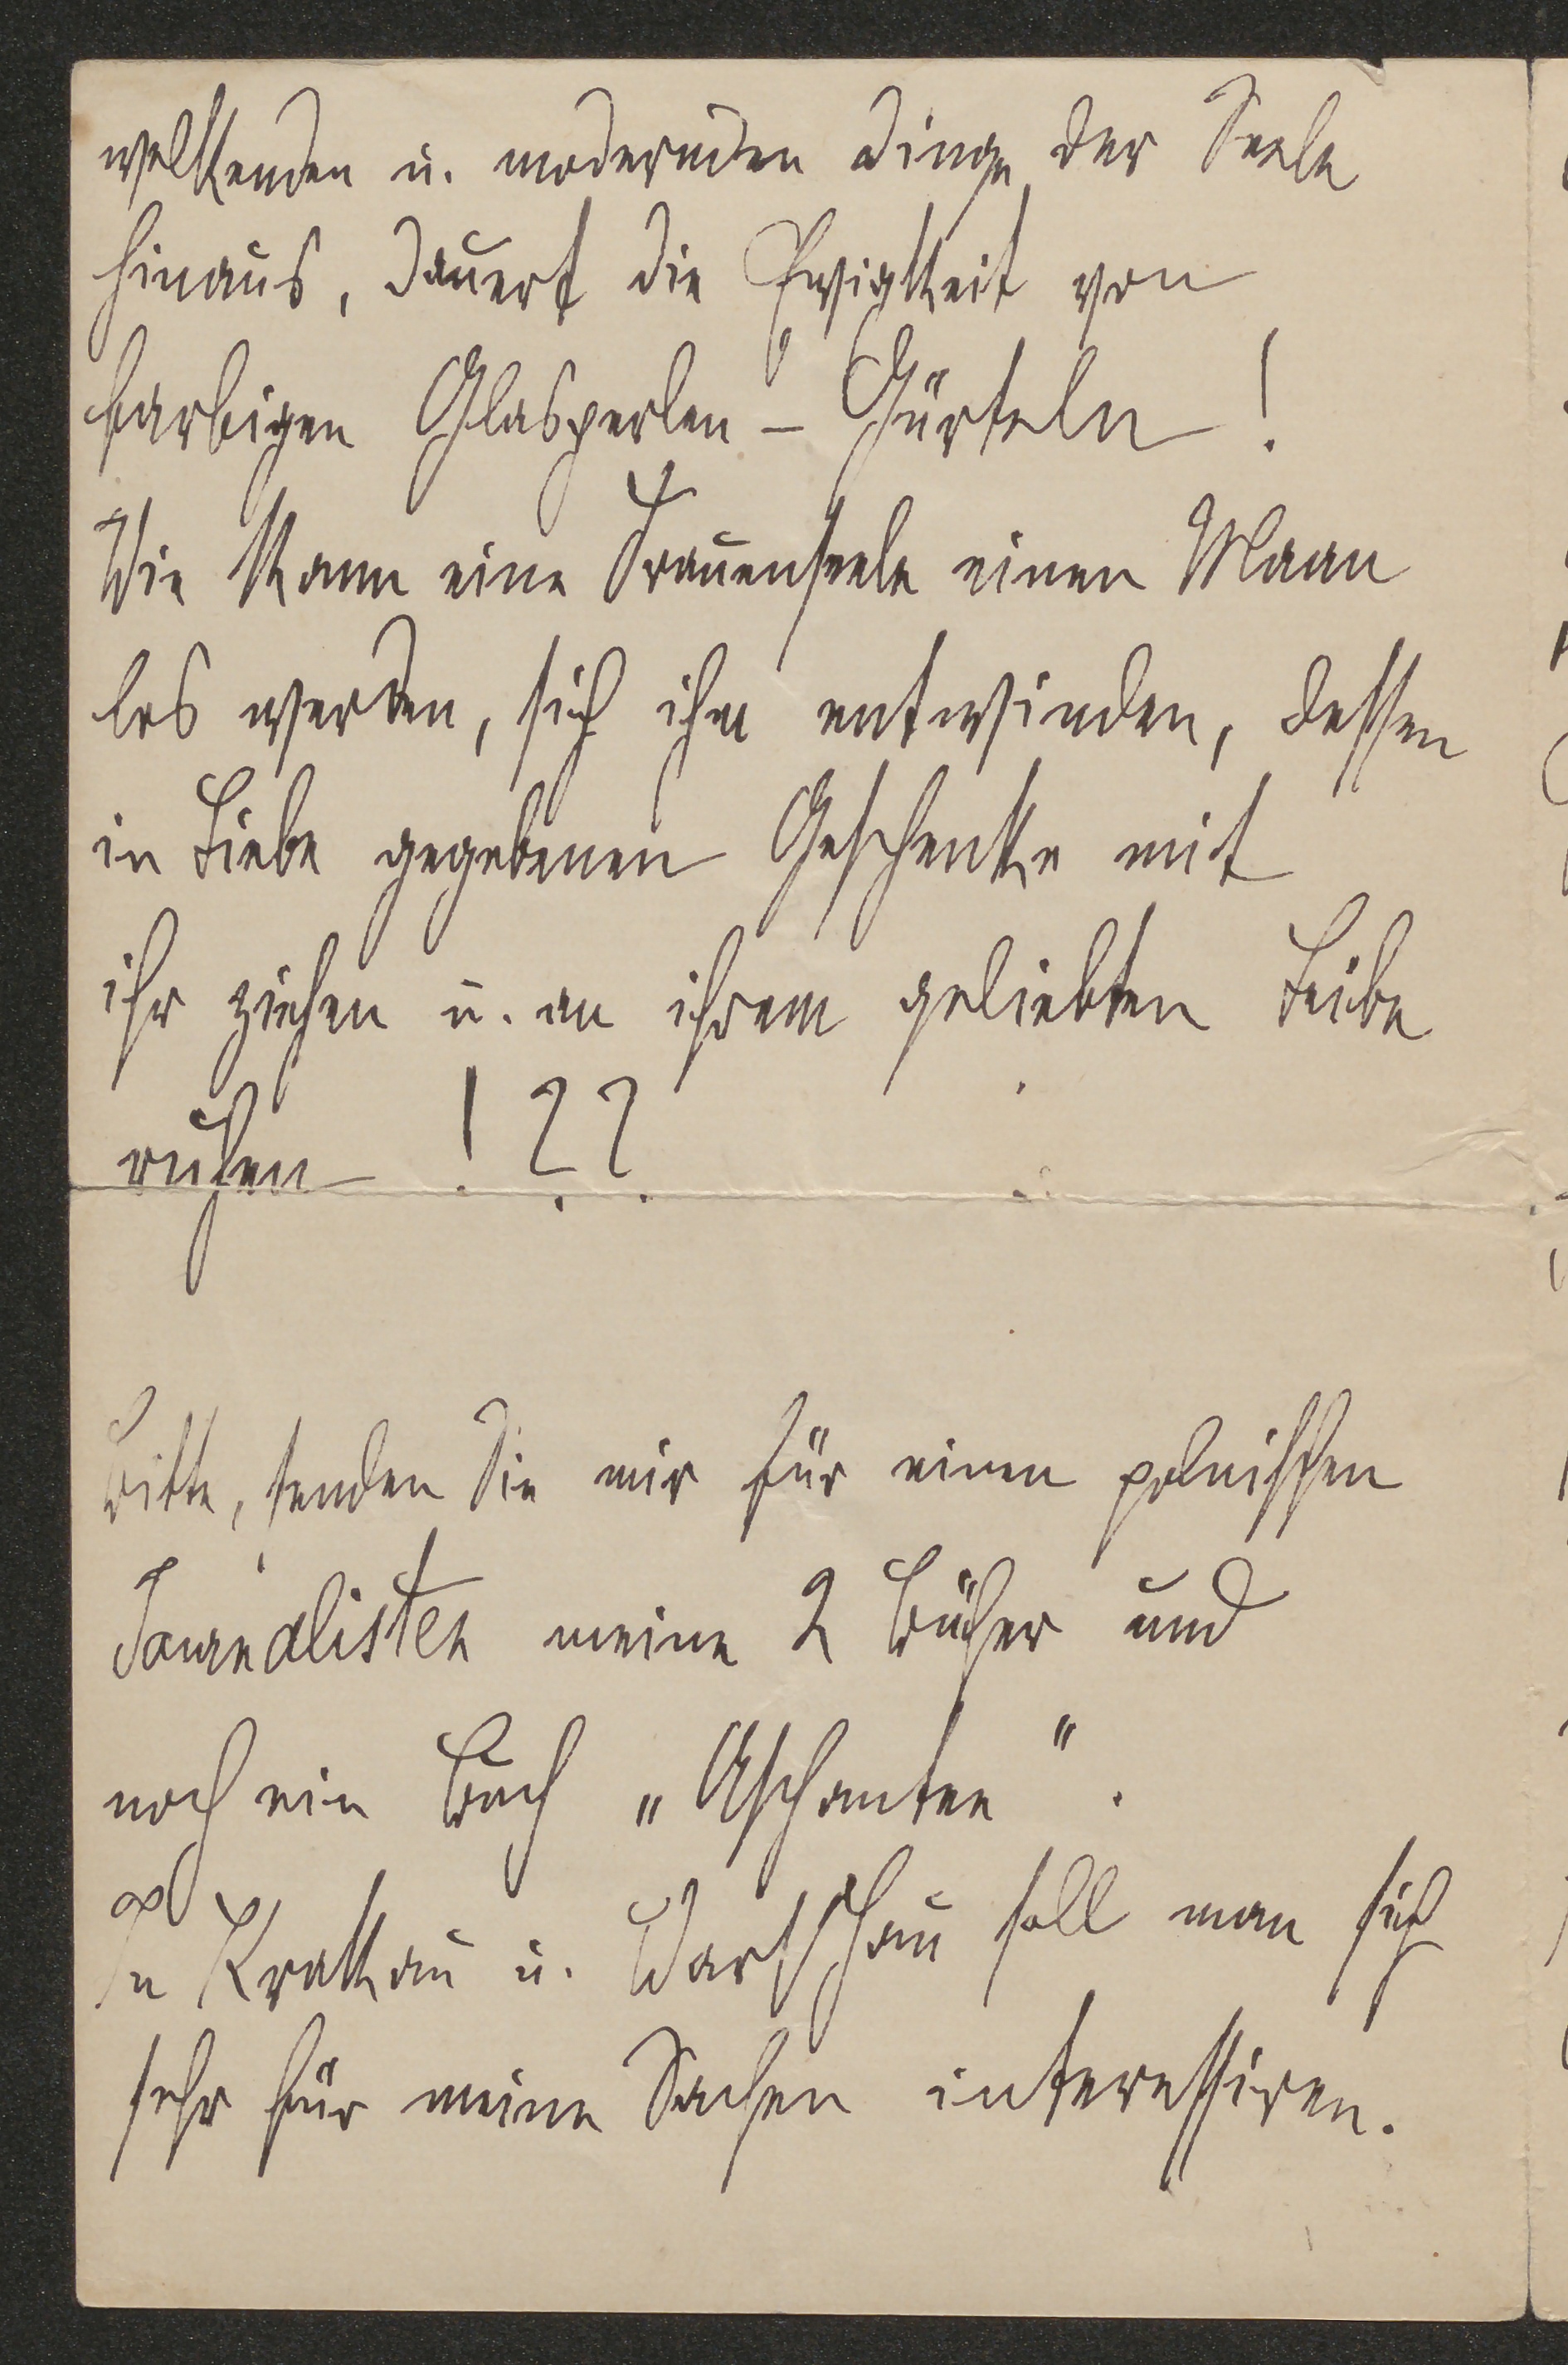 welkenden u. modernden Dinge der Seele
hinaus, dauert die Ewigkeit von
farbigen Glasperlen-Gürteln!
Wie kann eine Frauenseele einen Mann
los werden, sich ihm entwinden, dessen
in Liebe gegebenen Geschenke mit
ihr ziehen u. an ihrem geliebten Leibe
ruhen !??
Bitte, senden Sie mir für einen polnischen
Journalisten meine 2 Bücher und
noch ein Buch „Aschantee“.
In Krakau u. Warschau soll man sich
sehr für meine Sachen interessiren.